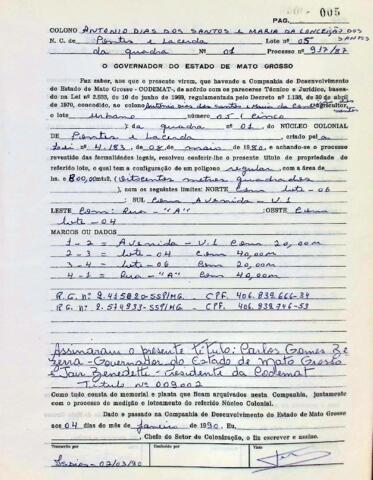 PAG. 005
COLONO ANTONIO DIAS DOS SANTOS E MARIA DA CONCEIÇÃO DOS SANTOS
N. C. de Pontes e Lacerda Lote nº 05
da quadra Nº 01 Processo nº 917/87
O GOVERNADOR DO ESTADO DE MATO GROSSO
Faz saber, aos que o presente virem, que havendo a Companhia de Desenvolvimento
do Estado de Mato Grosso - CODEMAT-, de acôrdo com os pareceres Técnico e Jurídico, basea-
do na Lei nº 2.833, de 10 de junho de 1968, regulamentada pelo Decreto nº 1.138, de 30 de abril
de 1970, concedido, ao colono Antonio Dias dos Santos e Maria da Conceição dos Santos agricultor,
o lote urbano nº 05 (cinco
) da quadra nº 01. do NÚCLEO COLONIAL
DE Pontes e Lacerda, criado pela
Lei nº 4.183, de 08 de maio de 1980, e achando-se o processo
revestido das formalidades legais, resolveu conferir-lhe o presente título de propriedade do
referido lote, o qual tem a configuração de um polígono regular, com a área de
ha. e 800,00 mts2. (Oitocentos metros quadrados
), com os seguintes limites: NORTE Com lote-06
; SUL Com Avenida-V.1
LESTE Com: Rua - "A" ; OESTE Com
lote-04
MARCOS OU DADOS
1 - 2 = Avenida - V.1 Com 20,00m
2 - 3 = lote-04 Com 40,00m
3 - 4 = lote-06 Com 20,00m
4 - 1 = Rua - "A" Com 40,00m
R.G. nº 2.415820-SSP/MG. - CPF. 406.832.666-34
R.G. nº 2.574933-SSP/MG. - CPF. 406.832.746-53
Assinaram o presente Título: Carlos Gomes Be
zerra - Governador do Estado de Mato Grosso
e Jair Benedetti - Presidente da Codemat
Título nº 009002
Como tudo consta do memorial e planta que ficam arquivados nesta Companhia, juntamente
com o processo de medição e loteamento do referido Núcleo Colonial.
Dado e passado na Companhia de Desenvolvimento do Estado de Mato Grosso
aos 04 dias do mês de janeiro de 1990. Eu,
, Chefe do Setor de Colonização, o fiz escrever e assino.
Transcrito por
Conferido por
Visto
02/03/90